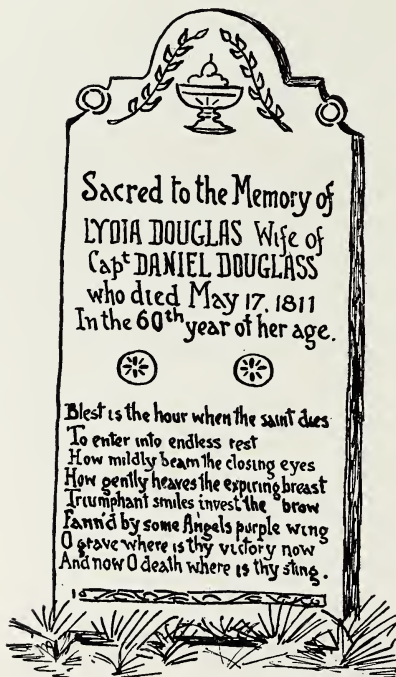 Sacred to the Memory of
LYDIA DOUGLAS Wife of
Capt DANIEL DOUGLASS
who died May 17, 1811
In the 60th year of her age.
Blest is the hour when the saint dies
To enter into endless rest
How mildly beam the closing eyes
How gently heaves the expiring breast
Triumphant smiles invest the brow
Fann'd by some Angels purple wing
O grave where is thy victory now
And now O death where is thy sting.